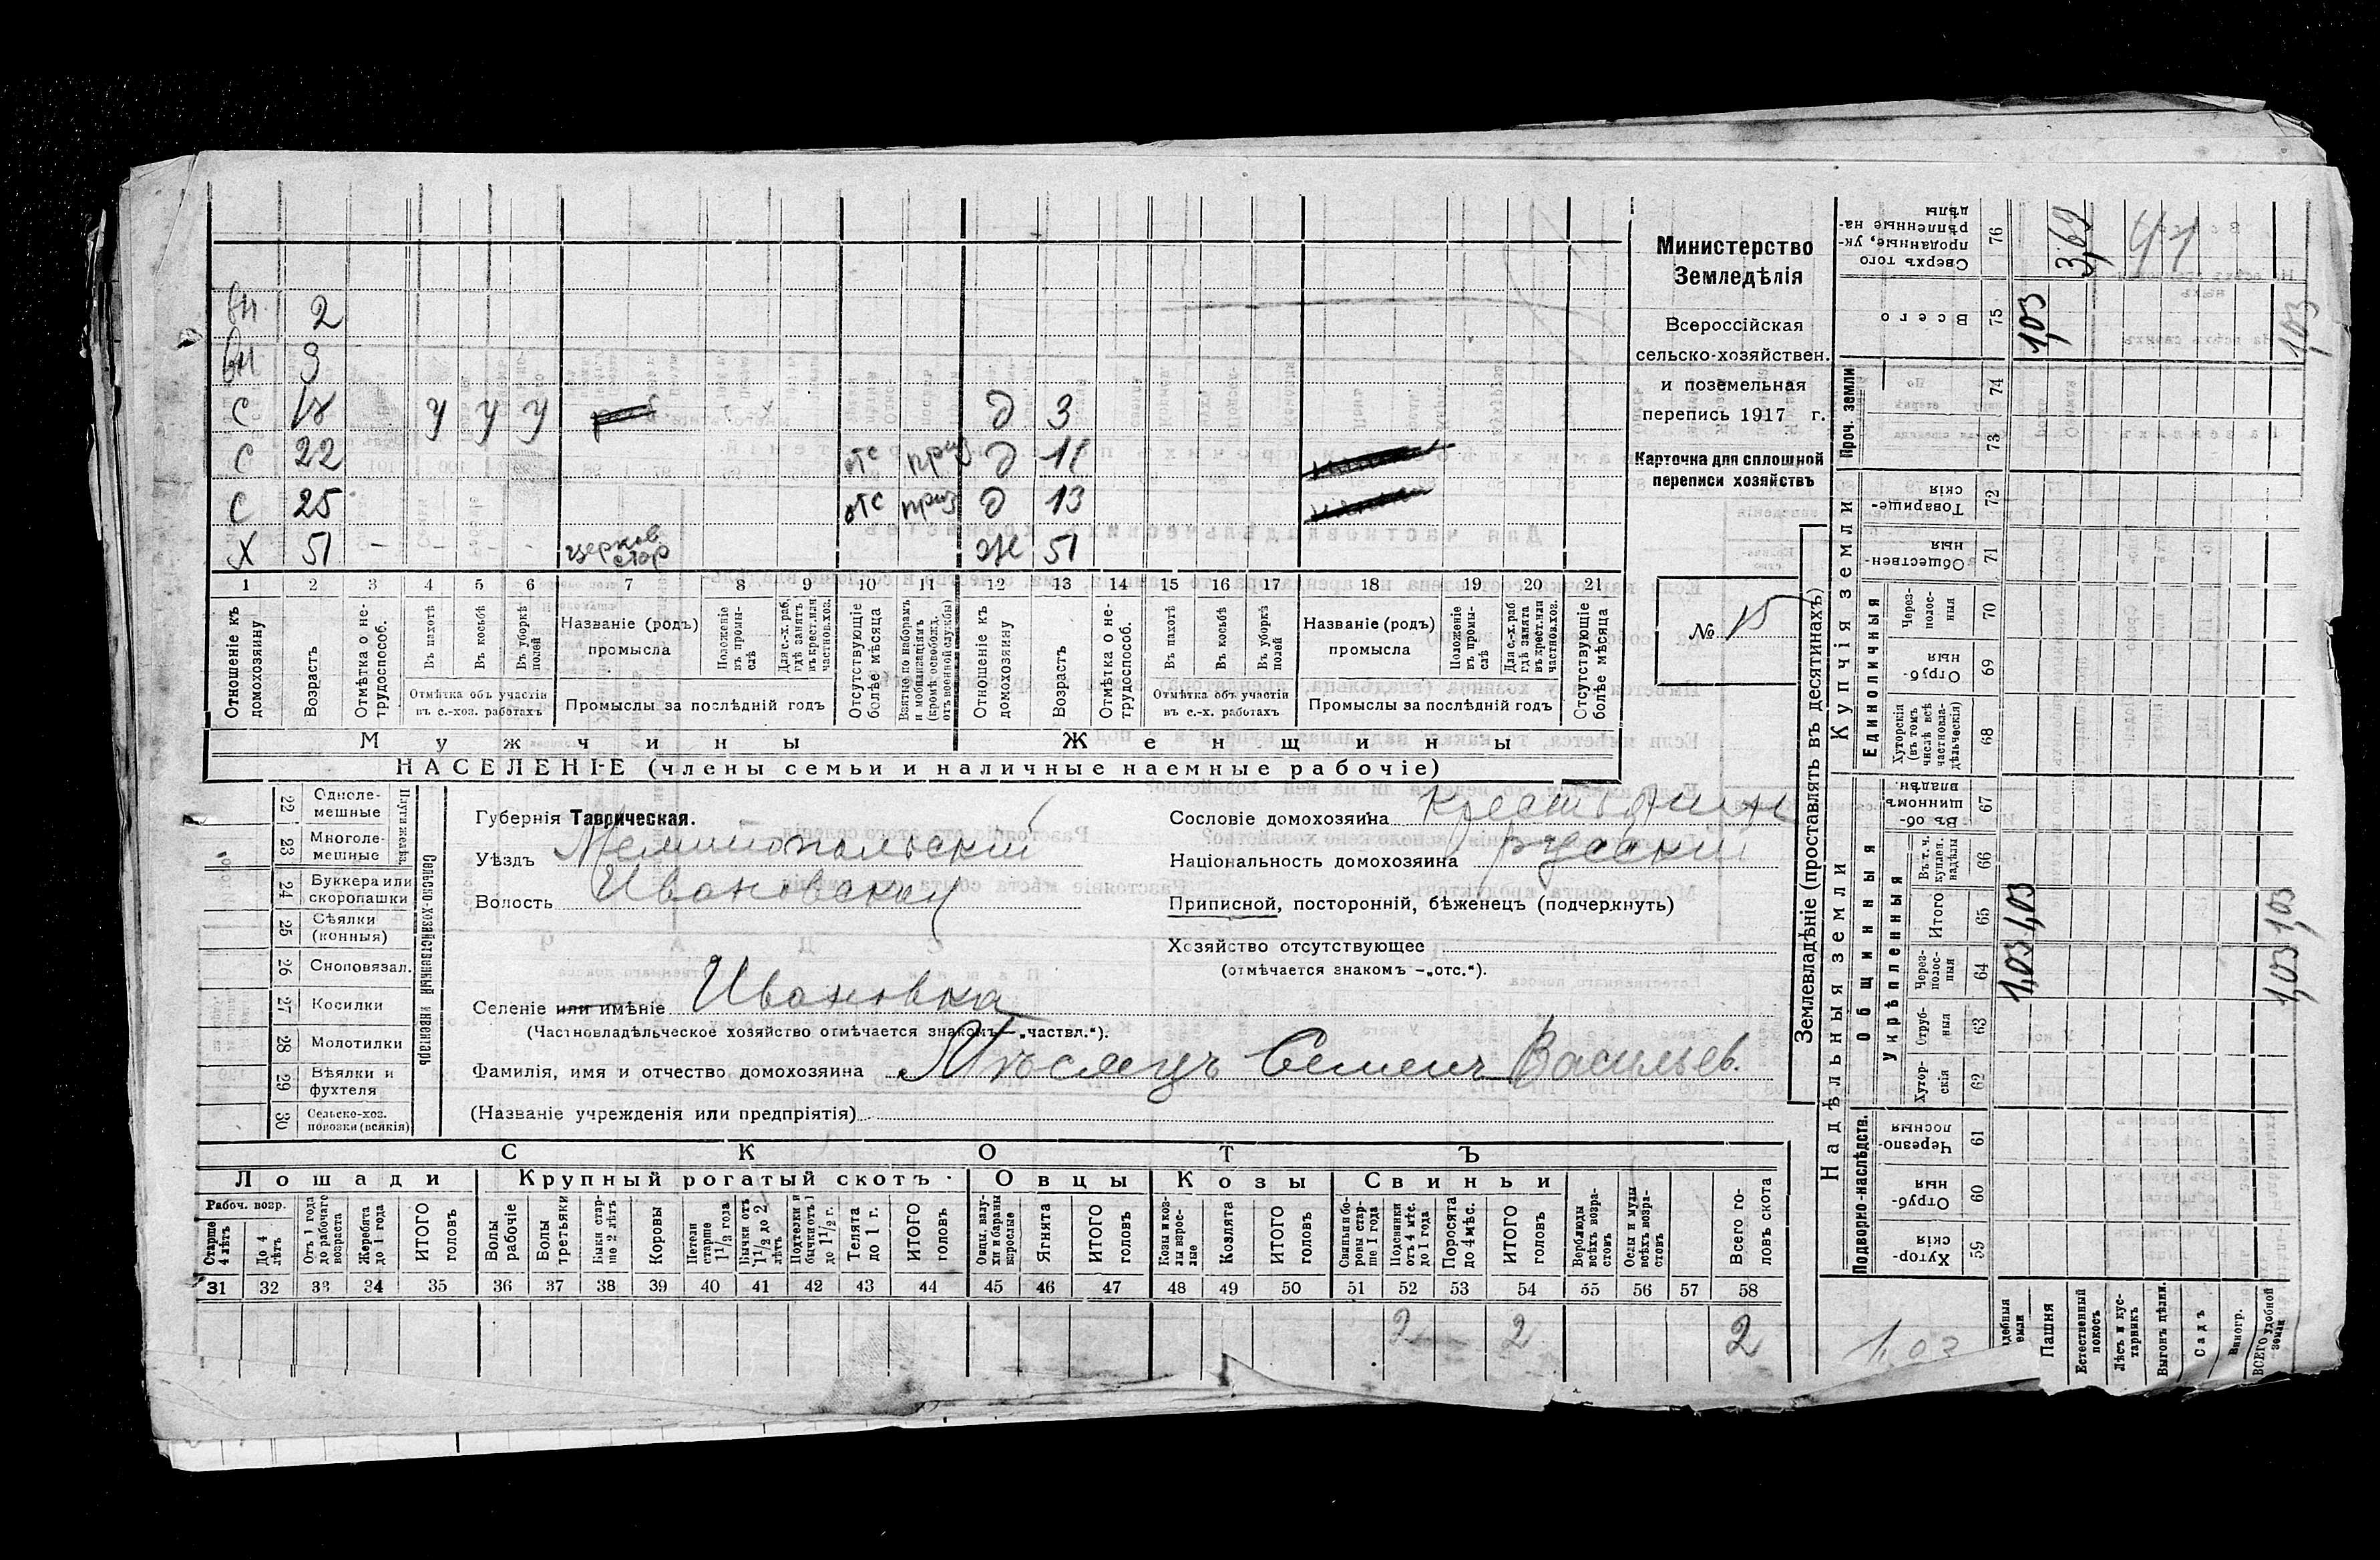 вн. 2
вн 9
с 18 у у у д 3
с 22 отс приз д 11
с 25 отс приз д 13
х 51 - - - - церков стор ж 51
1 2 3 4 5 6 7 8 9 10 11 12 13 14 15 16 17 18 19 20 21
Отношеніе къ домохозяину
Возрастъ
Отмѣтка о не-трудоспособ.
Въ пахотѣ
Въ косьбѣ
Въ уборкѣ полей
Отмѣтка объ участіи
въ с.-хоз. работахъ
Названіе (родъ)
промысла
Положеніе въ промы-слѣ
Для с.-х. раб. гдѣ занятъ въ крест. или частнов. хоз.
Промыслы за послѣдній годъ
Отсутствующіе болѣе мѣсяца
Взятые по наборамъ и мобилизаціямъ (кромѣ освобожд. отъ военной службы)
Отношеніе къ домохозяину
Возрастъ
Отмѣтка о не-трудоспособ.
Въ пахотѣ
Въ косьбѣ
Въ уборкѣ полей
Отмѣтка объ участіи
въ с.-х. работахъ
Названіе (родъ)
промысла
Положеніе въ промы-слѣ
Для с.-х. раб гдѣ занята въ крест. или частнов. хоз.
Промыслы за послѣдній годъ
Отсутствующіе болѣе мѣсяца
Мужчины Женщины
НАСЕЛЕНІЕ (члены семьи и наличные наемные рабочіе)
Министерство
Земледѣлія
Всероссійская
сельско-хозяйствен.
и поземельная
перепись 1917 г.
Карточка для сплошной
переписи хозяйствъ
№ 15
22 Однолемешные
23 Многолемешные
Плуги желѣз.
24 Буккера или скоропашки
25 Сѣялки (конныя)
26 Сноповязал.
27 Косилки
28 Молотилки
29 Вѣялки и фухтеля
30 Сельско-хоз. повозки (всякія)
Сельско-хозяйственный инвентарь
Губернія Таврическая.
Уѣздъ Мелитопольскій
Волость Ивановская
Сословіе домохозяина крестьянин
Національность домохозяина русскій
Приписной, посторонній, бѣженецъ (подчеркнуть)
Хозяйство отсутствующее
(отмѣчается знакомъ –„отс.“).
Селеніе или имѣніе Ивановка
(Частновладѣльческое хозяйство отмѣчается знакомъ—„частвл.“).
Фамилія, имя и отчество домохозяина Мѣсяцъ Семенъ Васильев.
(Названіе учрежденія или предпріятія)
СКОТЪ
Лошади Крупный рогатый скотъ Овцы Козы Свиньи
Рабоч. возр.
Старше 4 лѣтъ
До 4 лѣтъ
Отъ 1 года до рабочаго возраста
Жеребята до 1 года
ИТОГО головъ
Волы рабочіе
Волы третьяки
Быки стар-ше 2 лѣтъ
Коровы
Нетели старше 1 1/2 года
Бычки отъ 1 1/2 до 2 лѣтъ
Подтелки и бычки отъ 1 до 1 1/2 г.
Телята до 1 г.
ИТОГО головъ
Овцы, валу-хи и бараны взрослые
Ягнята
ИТОГО головъ
Козы и коз-лы взрос-лые
Козлята
ИТОГО головъ
Свиньи и бо-ровы стар-ше 1 года
Подсвинки отъ 4 мѣс. до 1 года
Поросята до 4 мѣс.
ИТОГО головъ
Верблюды всѣхъ возра-стовъ
Ослы и мулы всѣхъ возра-стовъ
Всего го-ловъ скота
31 32 33 34 35 36 37 38 39 40 41 42 43 44 45 46 47 48 49 50 51 52 53 54 55 56 57 58
2 2 2
Землевладѣніе (проставлять въ десятинахъ)
Надѣльныя земли Купчія земли Проч. земли
Подворно-наслѣдств. Общинныя Единоличныя
Укрѣпленныя
Хутор-скія 59
Отруб-ныя 60
Черезпо-лосныя 61
Хутор-скія 62
Отруб-ныя 63
Через-полос-ныя 64
Итого 65
Въ т. ч. куплен. надѣлы 66
Въ об-щинномъ владѣн. 67
Хуторскія (въ томъ числѣ всѣ частновла-дѣльческія) 68
Отруб-ныя 69
Через-полос-ныя 70
Обществен-ныя 71
Товарище-скія 72
73
74
Всего 75
Сверхъ того проданные, ук-рѣпленные на-дѣлы 76
1,03 1,03 1,03
3,69
41
1,03 1,03 1,03
1,03
Пашня
Естественный покосъ
Лѣсъ и кус-тарникъ
Выгонъ дѣлян.
Садъ
Виногр.
ВСЕГО удобной земли